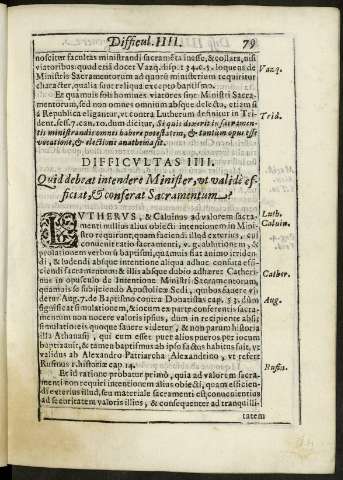 Difficul. IIII. 79
noscitur facultas ministrandi sacramēta inesse, & collata, nisi
viatoribus: quod etiā docet Vazq. disp. 134. c. 1. loquens de Vazq.
Ministris Sacramentorum ad quorū ministerium requiritur
character, qualia sunt reliqua excepto baptismo.
Et quamuis soli homines viatores sint Ministri Sacra-
mentorum, sed non omnes omnium absque delectu, etiam si
à Republica eligantur, vt contra Lutherum definitur in Tri- Trid.
dent. sess. 7. can. 10. dum dicitur, Si quis dixerit in sacramen-
tis ministrandis omnes habere potestatem, & tantum opus esse
vocatione, & electione anathema sit.
DIFFICULTAS IIII.
Quid debeat intendere Minister, vt validè ef-
ficiat, & conferat Sacramentum?
LVTHERVS, & Caluinus ad valorem sacra- Luth.
menti nullius alius obiecti intentionem in Mini- Caluin.
stro requirunt, quam faciendi illud exterius, cui
conuenit ratio sacramenti, v. g. ablutionem, &
prolationem verborū baptismi, quamuis fiat animo irriden
di, & ludendi absque intentione aliqua adhuc confusa effi-
ciendi sacramentum: & illis absque dubio adhæret Catheri- Cather.
nus in opusculo de Intentione Ministri Sacramentorum,
quamuis se subijciendo Apostolicæ Sedi, quibus fauere vi
detur Aug. 7. de Baptismo contra Donatistas cap. 53. dum Aug.
significat simulationem, & iocum ex parte conferentis sacra-
mentum non nocere valoris ipsius, dum in recipiente absit
simulatio: eis quoque fauere videtur, & non parum historia
illa Athanasij, qui cum esset puer alios pueros per iocum
baptizauit, & tamen baptismus ab ipso factus habitus fuit vt
validus ab Alexandro Patriarcha Alexandrino, vt refert
Rufinus 1. historiæ cap. 14. Rufin.
Et id ratione probatur primò, quia ad valorem sacra-
menti non requiri intentionem alius obiecti, quam efficien-
di exterius illud, seu materiale sacramenti est conuenientius
ad securitatem valoris illius, & consequenter ad tranquilli-
tatem